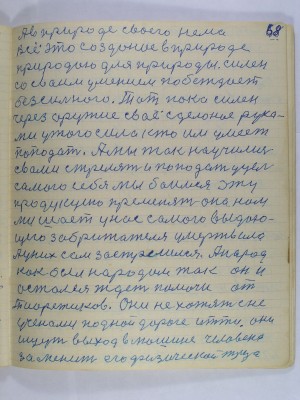 58
Я в природе своего нема
всё это создоное в природе
природою для природы. силен
со своим умением побеждает
безсильного. Тот пока силен
через оружие своё сделоное рука-
ми у того сила кто им умеет
попадат. А мы так научилис
свами стрелят и попадат у цел
самого себя мы боимся эту
продукцию применят она нам
мишает у нас самого
умертвила
А народ
как был народом так он и
остался ждет помочи от
Тиоретиков. Они не хотят с не
учеными по одной дороге итти. они
ищут выход в машине человека
заменит его физической труд